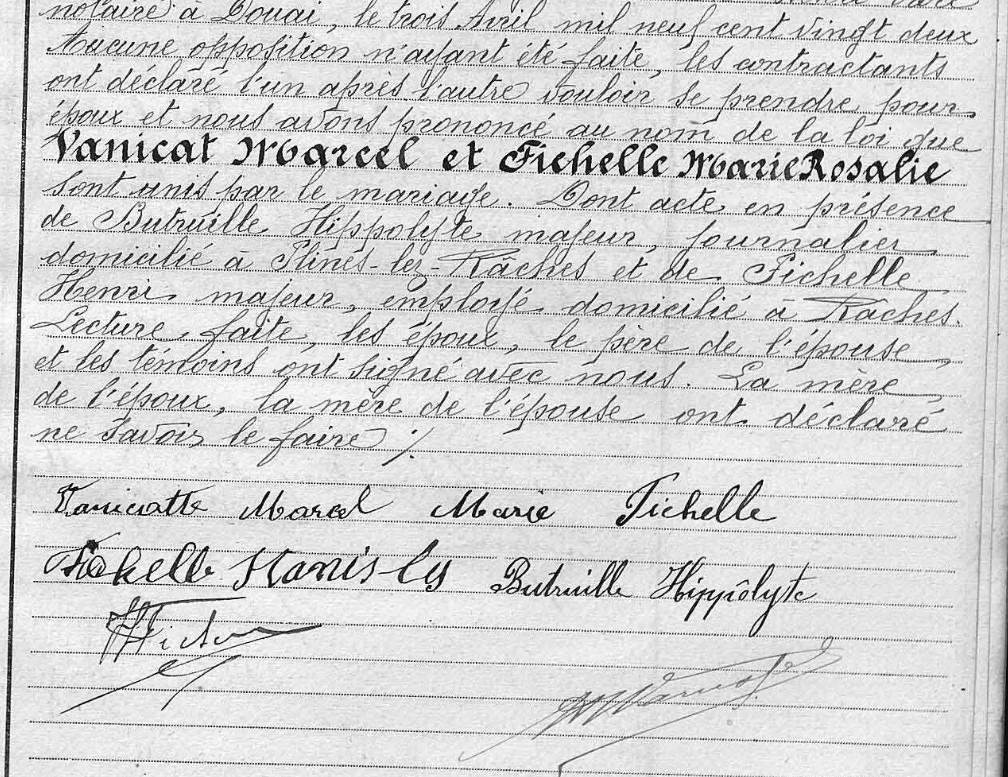 notaire à Douai, le trois Avril mil neuf cent vingt deux
Aucune opposition n'ayant été faite, les contractants
ont déclaré l'un après l'autre vouloir se prendre pour
époux et nous avons prononcé au nom de la loi que
Vanicat Marcel et Fichelle Marie Rosalie
sont unis par le mariage. Dont acte en présence
de Butruille Hippolyte majeur, journalier
domicilié à Flines-lez-Râches et de Fichelle
Henri majeur, employé domicilié à Râches.
Lecture faite, les époux, le père de l'épouse,
et les témoins ont signé avec nous. La mère
de l'époux, la mère de l'épouse ont déclaré
ne savoir le faire ./.
Vanicatte Marcel Marie Fichelle
Fichelle Stanislas Butruille Hippolyte